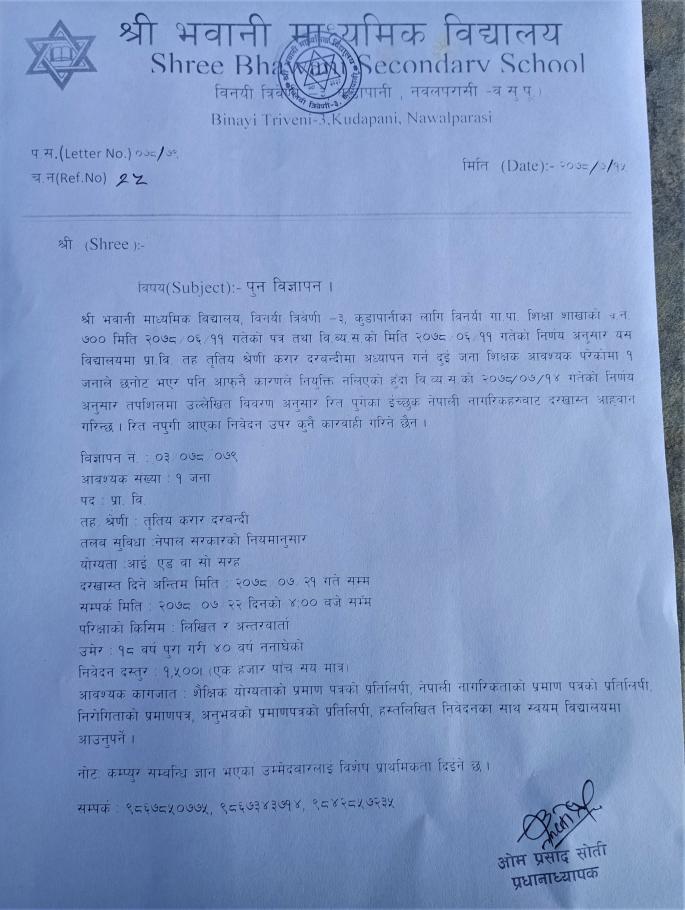 श्री भवानी माध्यमिक विद्यालय
Shree Bhawani Secondary School
विनयी त्रिवेणी -३, कुडापानी , नवलपरासी -व सु पू ।
Binayi Triveni-3,Kudapani, Nawalparasi
प स.(Letter No.) ०७८/७९
च.न(Ref.No) २८
मिति (Date):- २०७८/७/१५
श्री (Shree ):-
विषय(Subject):- पुन विज्ञापन ।
श्री भवानी माध्यमिक विद्यालय, विनयी त्रिवेणी -३, कुडापानीका लागि विनयी गा.पा. शिक्षा शाखाको च.न.
७०० मिति २०७८/०६/११ गतेको पत्र तथा वि.व्य स.को मिति २०७८/०६/११ गतेको निर्णय अनुसार यस
विद्यालयमा प्रा.वि. तह तृतिय श्रेणी करार दरबन्दीमा अध्यापन गर्न दुई जना शिक्षक आवश्यक परेकोमा १
जनाले छनोट भएर पनि आफनै कारणले नियुक्ति नलिएको हुंदा वि व्य स.को २०७८/०७/१४ गतेको निर्णय
अनुसार तपशिलमा उल्लेखित विवरण अनुसार रित पुगेका ईच्छुक नेपाली नागरिकहरुवाट दरखास्त आहवान
गरिन्छ । रित नपुगी आएका निवेदन उपर कुनै कारवाही गरिने छैन ।
विज्ञापन न. : ०३/०७८/०७९
आवश्यक सख्या : १ जना
पद : प्रा. वि.
तह/श्रेणी : तृतिय करार दरबन्दी
तलब सुविधा :नेपाल सरकारको नियमानुसार
योग्यता :आई. एड वा सो सरह
दरखास्त दिने अन्तिम मिति : २०७८/०७/२१ गते सम्म
सम्पर्क मिति : २०७८/०७/२२ दिनको ४:०० वजे सम्म
परिक्षाको किसिम : लिखित र अन्तरवार्ता
उमेर : १८ वर्ष पुरा गरी ४० वर्ष ननाघेको
निवेदन दस्तुर : १,५००। (एक हजार पांच सय मात्र)
आवश्यक कागजात : शैक्षिक योग्यताको प्रमाण पत्रको प्रतिलिपी, नेपाली नागरिकताको प्रमाण पत्रको प्रतिलिपी,
निरोगिताको प्रमाणपत्र, अनुभवको प्रमाणपत्रको प्रतिलिपी, हस्तलिखित निवेदनका साथ स्वयम विद्यालयमा
आउनुपर्ने ।
नोट: कम्प्युर सम्बन्धि ज्ञान भएका उम्मेदवारलाई विशेष प्राथमिकता दिइने छ ।
सम्पर्क : ९८६७८५०७७५, ९८६७३४३७१४, ९८४२८५७२३५
ओम प्रसाद सोती
प्रधानाध्यापक